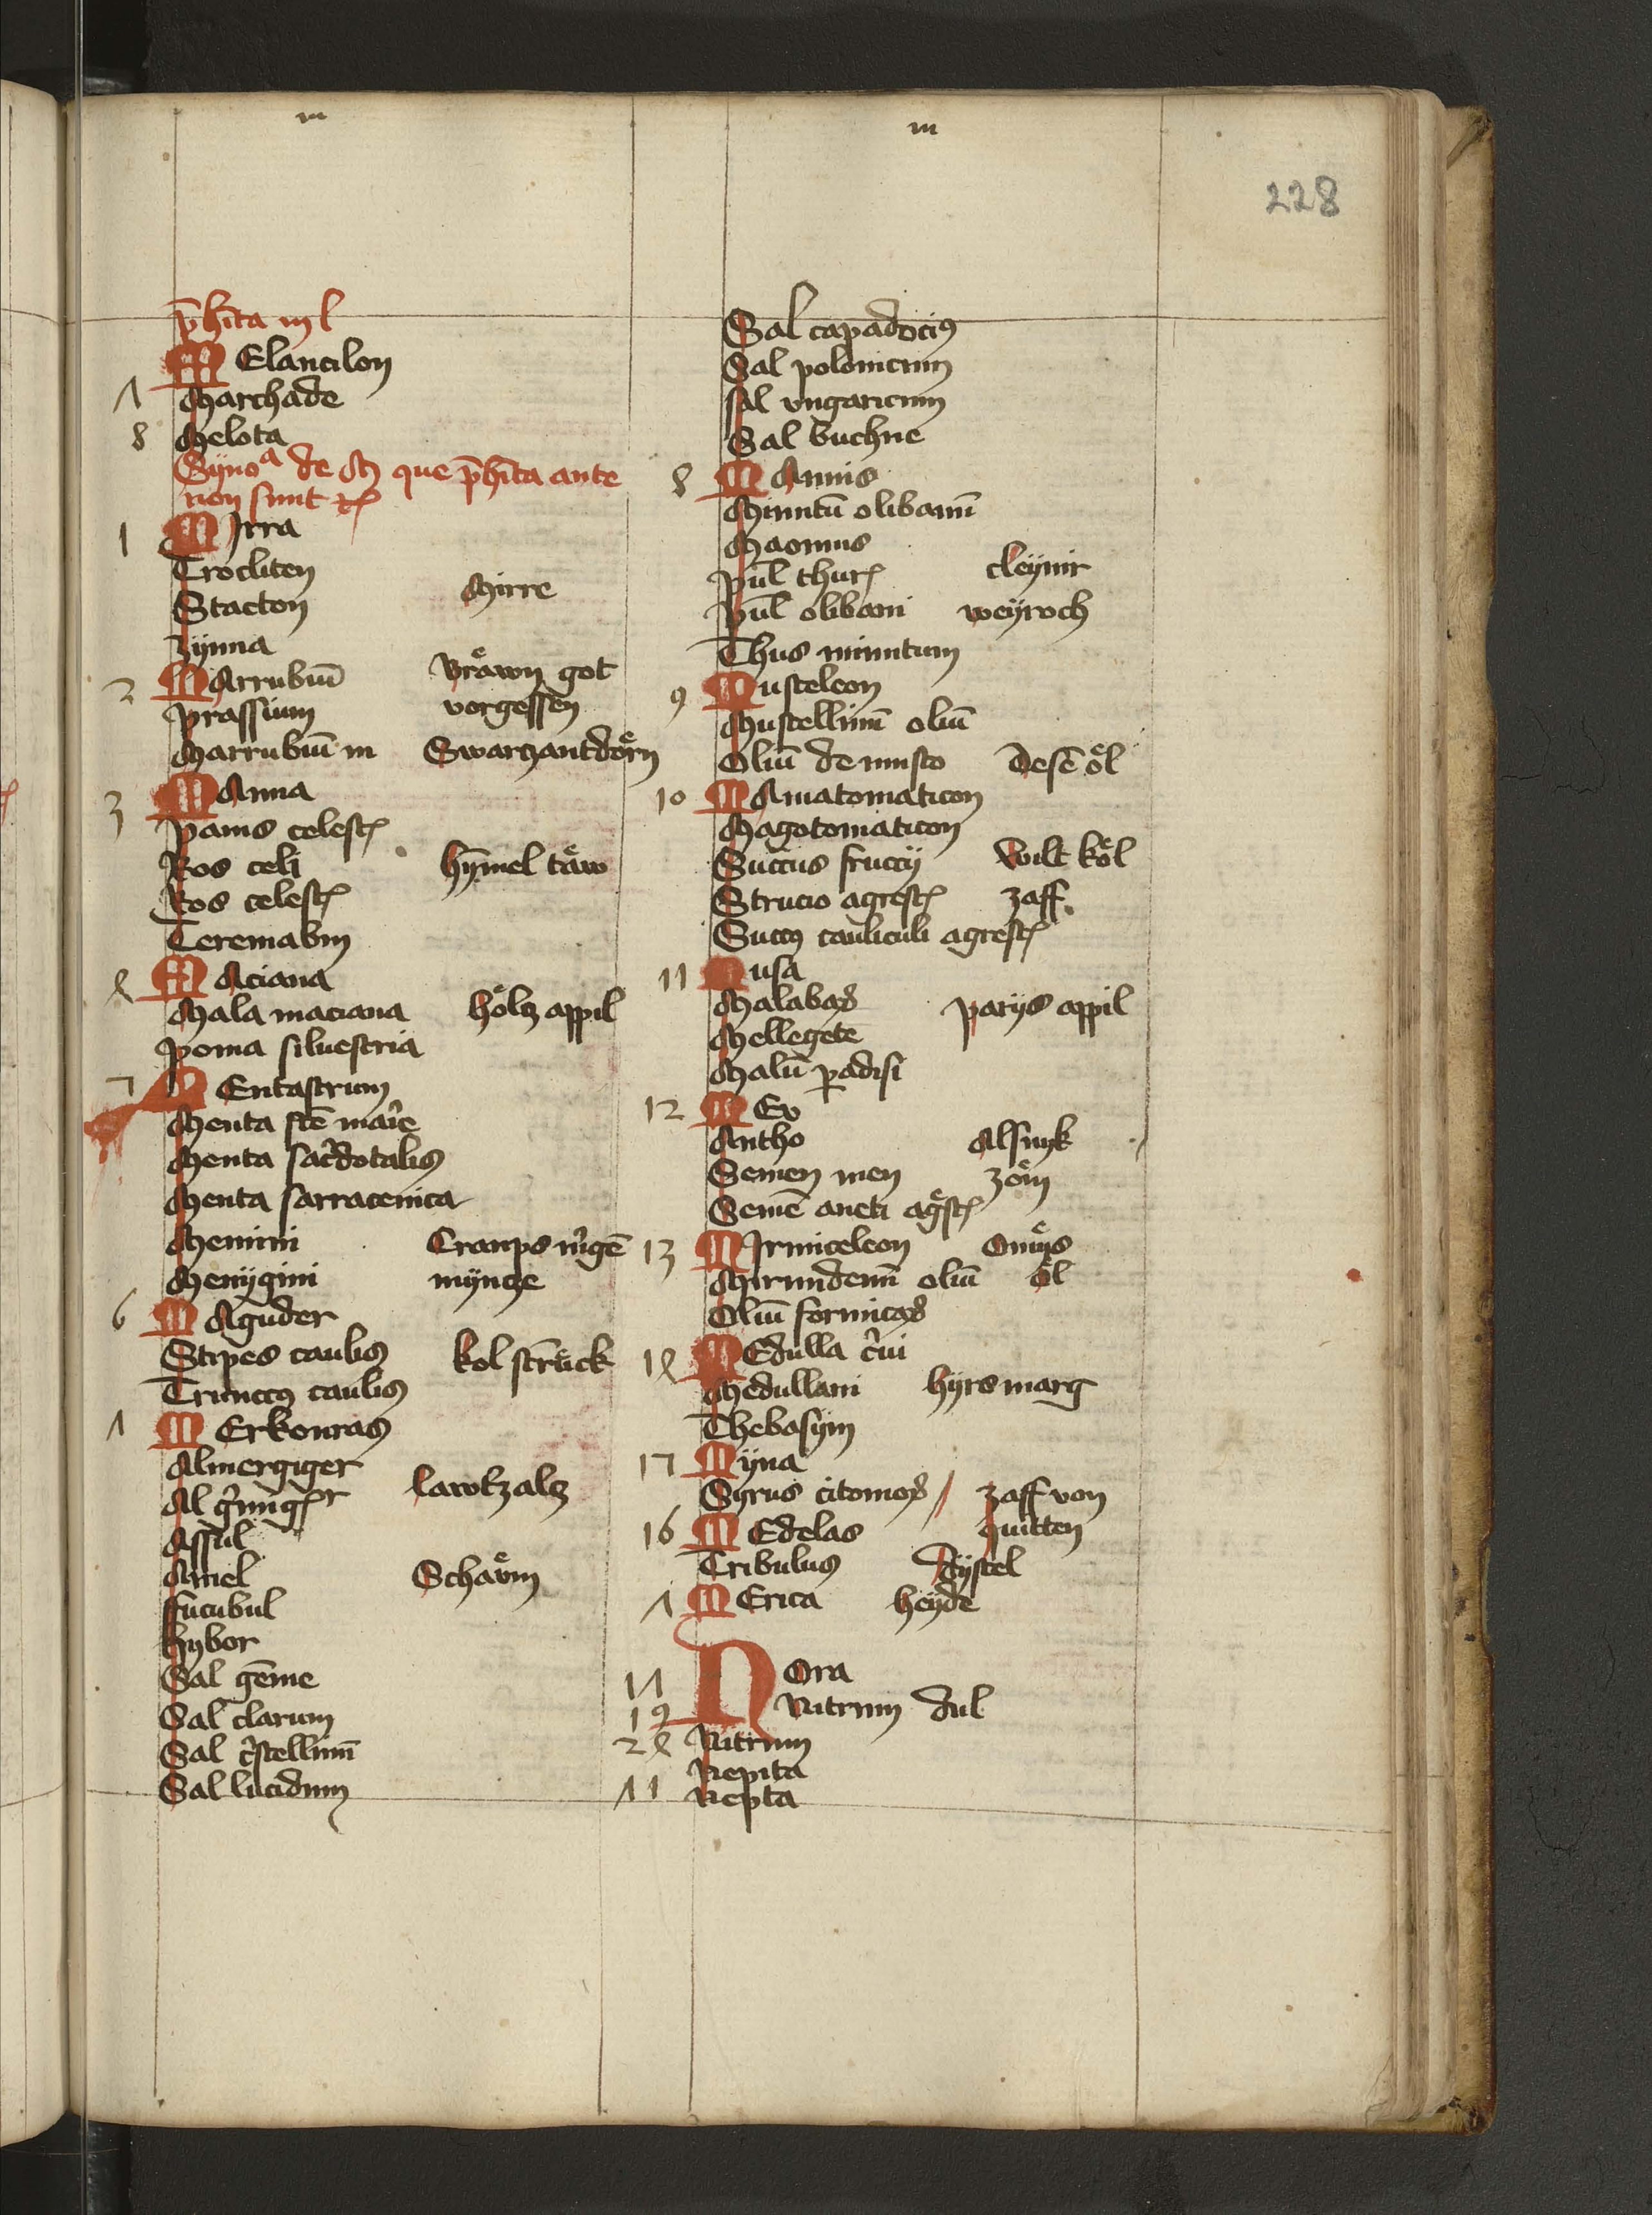 m
m
228
p̄hīta m l
MElancilon
Λ Marchade
8 Melota
Syno<sup>a</sup> de M que p̄hīta ante
non sunt
1 MJrra
Trocliten
Stacton Mirre
zynna
2 MArrubiū Braͤwn got
Prassium vorgessen
Marrubiū m Swarczantdoͤrn
3 MAnna
Panis celest
Ros celi hȳmel taͤw
Ros celest
Teremabin
MAciana
Mala maciana hoͤlcz appil
Poma siluestria
MEntastrum
Menta sc̄e marie
Menta sac̄dotalis
Menta sarracenica
Memini Cranps
Menygini myncze
6 MAguder
Stipes caulis kol struͤck
Truncus caulis
Λ MErkonras
Almergiger
Al lawtzalcz
Assul
Amel Schaͤvm
ffucubul
hybor
Sal gēme
Sal clarum
Sal c̄stellinū
Sal lucidum
Sal capadocius
Sal polonicum
sal vngaricum
Sal buchne
8 MAnnis
Minutū olibanū
Maomus
Pul thur cleynir
Pul olibani weyroch
Thus minutum
9 Musteleon
Mustellinū oliū
Oliū de musto Desē oͤl
10 MAmatomaticon
Magotomaticon
Succus struccij Wilt koͤl
Strucio agrest zaff
Succus cauliculi agrest
11 Musa
Malabar Parijs appil
Mellegete
Malū padisi
12 MEv
Antho Alsnyk
Semen men zoͤm
Semē aneti ag̊st
13 MJrmiceleon Omeys
Mirundenū oliū oͤl
Oliū formicar
MEdulla c̄ui
Medullani hyrs marg
Thebasym
Myna
Syrus citonior / zaff von
16 MEdelas quitten
Tribulus dystel
Λ MErica heyde
NOra
19 Nitrum dul
Nitrum
Nepita
11 Nepta